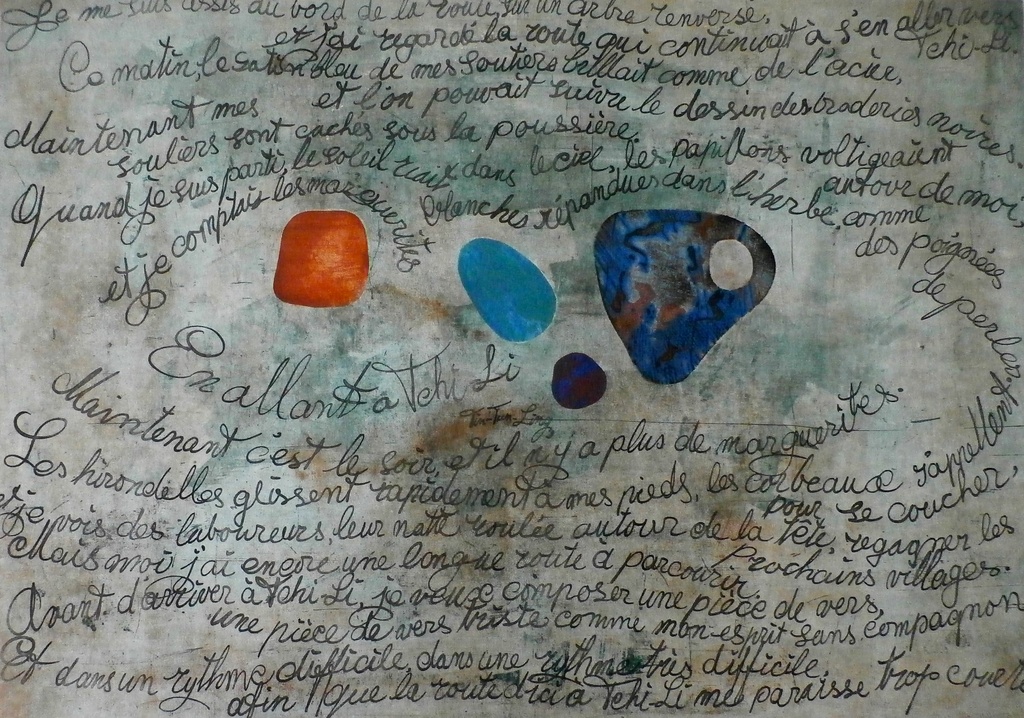 Je me suis assis au bord de la route sur un arbre renversé,
et j'ai regardé la route qui continuait à s'en aller vers
Tchi-Li.
Ce matin, le satin bleu de mes souliers brillait comme de l'acier,
et l'on pouvait suivre le dessin des broderies noires.
Maintenant mes
souliers sont cachés sous la poussière.
Quand je suis parti, le soleil riait dans le ciel, les papillons voltigeaient
autour de moi,
et je comptais les marguerites
blanches répandues dans l'herbe, comme
des poignées
de perles.
En allant à Tchi-Li
Tin-Tun-Ling
Maintenant c'est le soir, et il n'y a plus de marguerites.
Les hirondelles glissent rapidement à mes pieds, les corbeaux s'appellent
pour se coucher,
et je vois des laboureurs, leur natte roulée autour de la tête, regagner les
prochains villages.
Mais moi j'ai encore une longue route à parcourir.
Avant d'arriver à Tchi-Li, je veux composer une pièce de vers,
une pièce de vers triste comme mon esprit sans compagnon
Et dans un rythme difficile, dans une rythme très difficile,
afin que la route d'ici à Tchi-Li me paraisse trop courte